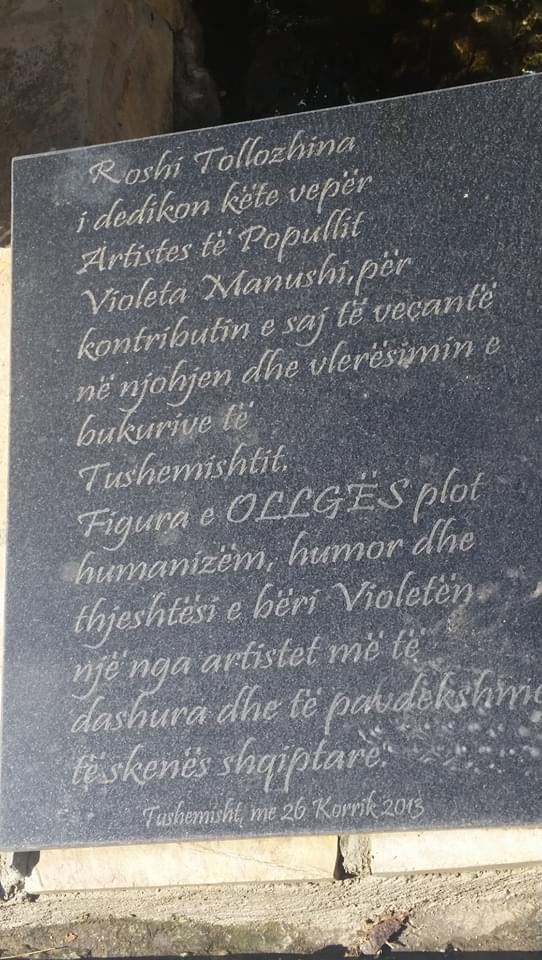 Roshi Tollozhina
i dedikon këte vepër
Artistes të Popullit
Violeta Manushi, për
kontributin e saj të veçantë
në njohjen dhe vlerësimin e
bukurive të
Tushemishtit.
Figura e OLLGËS plot
humanizëm, humor dhe
thjeshtësi e bëri Violetën
një nga artistet më të
dashura dhe të pavdekshme
të skenës shqiptare.
Tushemisht, me 26 Korrik 2013